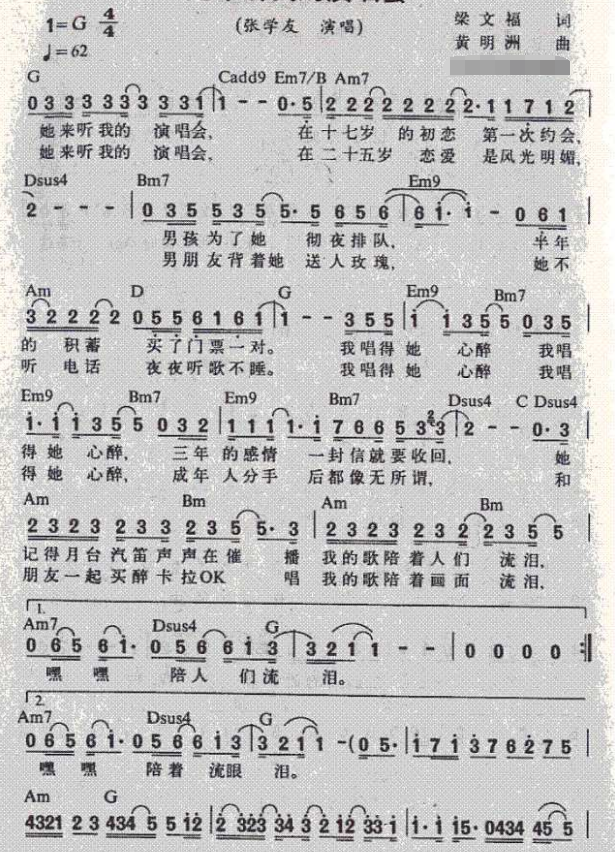 1=G 4/4
(张学友 演唱)
梁文福 词
♩=62
黄明洲 曲
G Cadd9 Em7/B Am7
0 3 3 3 3 3 3 3 3 1 | 1 - - 0·5 | 2 2 2 2 2 2 2 2·1 1 7 1 2
她来听我的 演唱会, 在十七岁 的初恋 第一次约会,
她来听我的 演唱会, 在二十五岁 恋爱 是风光明媚,
Dsus4 Bm7 Em9
2 - - - | 0 3 5 5 3 5 5· 5 6 5 6 | 6 1· 1 - 0 6 1
男孩为了她 彻夜排队, 半年
男朋友背着她 送人玫瑰, 她不
Am D G Em9 Bm7
3 2 2 2 2 2 0 5 5 6 1 6 1 | 1 - - 3 5 5 | 1 1 3 5 5 0 3 5
的 积蓄 买了门票一对。 我唱得她 心醉 我唱
听 电话 夜夜听歌不睡。 我唱得她 心醉 我唱
Em9 Bm7 Em9 Bm7 Dsus4 C Dsus4
1· 1 1 3 5 5 0 3 2 | 1 1 1 1· 1 7 6 6 5 3 3 2 | 2 - - 0·3
得她 心醉, 三年 的感情 一封信就要收回, 她
得她 心醉, 成年 人分手 后都像无所谓, 和
Am Bm Am Bm
2 3 2 3 2 3 3 2 3 5 5· 3 | 2 3 2 3 2 3 2 2 3 5 5
记得月台 汽笛声声在催 播 我的歌陪着人们 流泪,
朋友一起 买醉卡拉OK 唱 我的歌陪着画面 流泪,
1.
Am7 Dsus4 G
0 6 5 6 1· 0 5 6 6 1 3 | 3 2 1 1 - - | 0 0 0 0 :‖
嘿 嘿 陪人 们流 泪。
2.
Am7 Dsus4 G
0 6 5 6 1· 0 5 6 6 1 3 | 3 2 1 1 -(0 5· | 1 7 1 3 7 6 2 7 5
嘿 嘿 陪着 流眼 泪。
Am G
4321 2 3 434 5 5 12 | 2 323 34 3 2 12 33·1 | 1·1 15· 0434 45 5